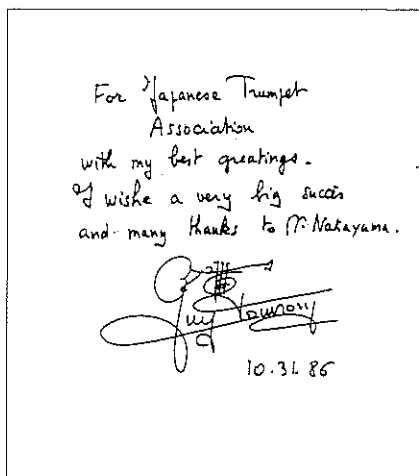 For Japanese Trumpet
Association
with my best greatings.
I wishe a very big succès
and many thanks to Mr. Nakayama.
Guy Touvron
10.31.86